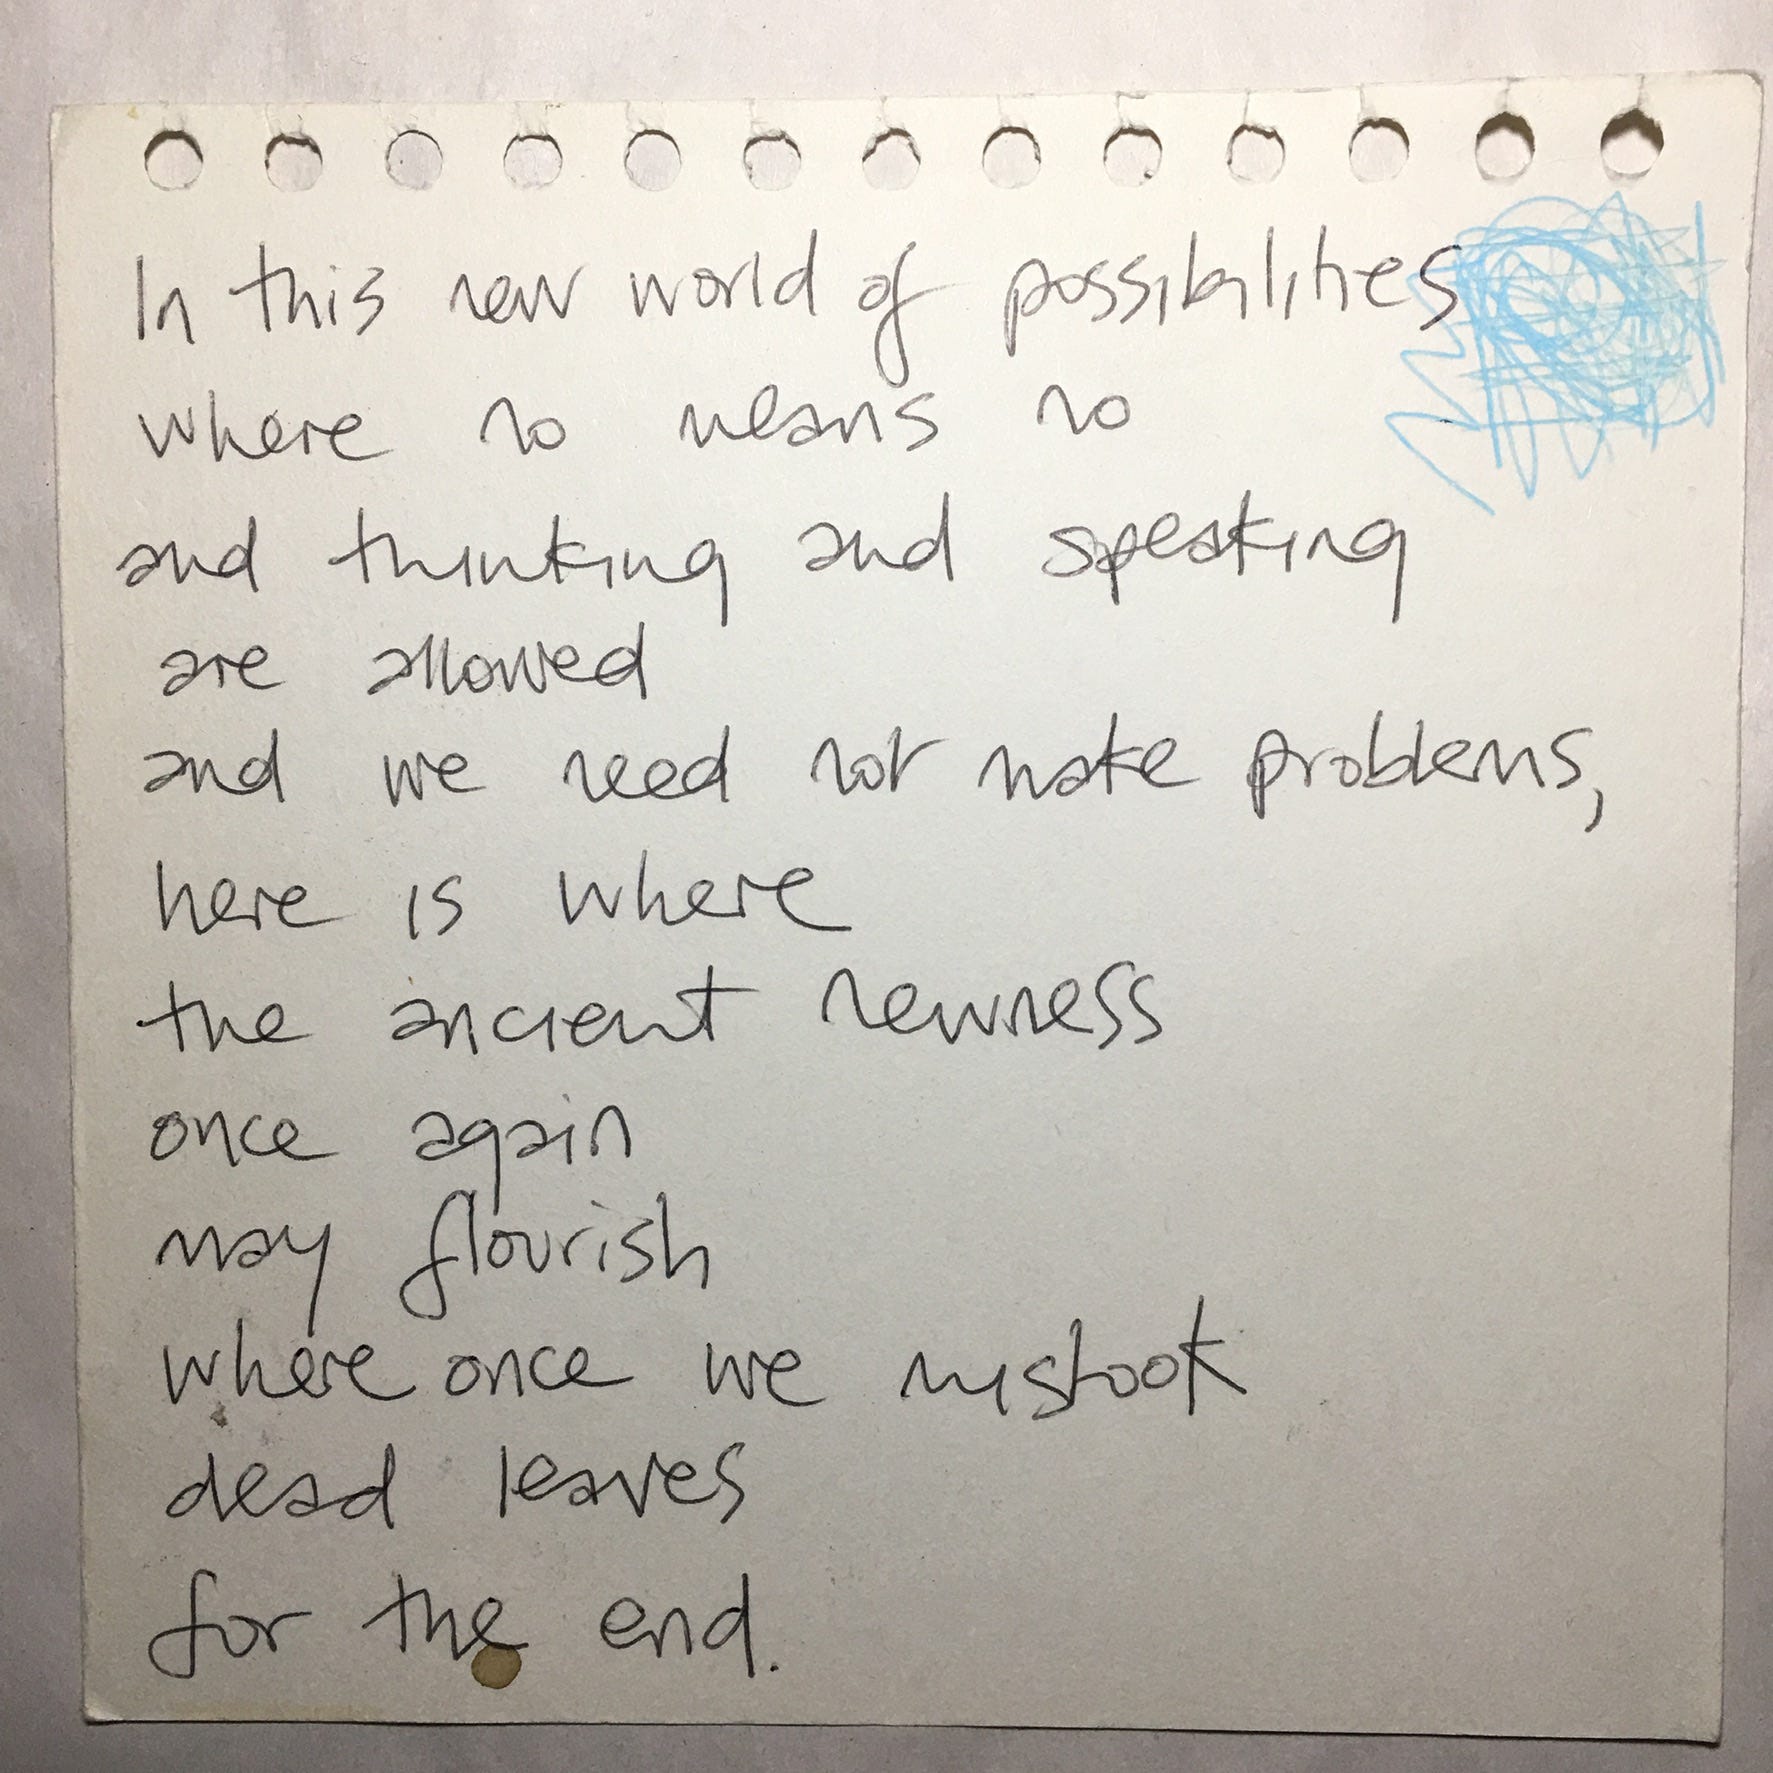 In this new world of possibilities
where no means no
and thinking and speaking
are allowed
and we need not make problems,
here is where
the ancient newness
once again
may flourish
where once we mistook
dead leaves
for the end.